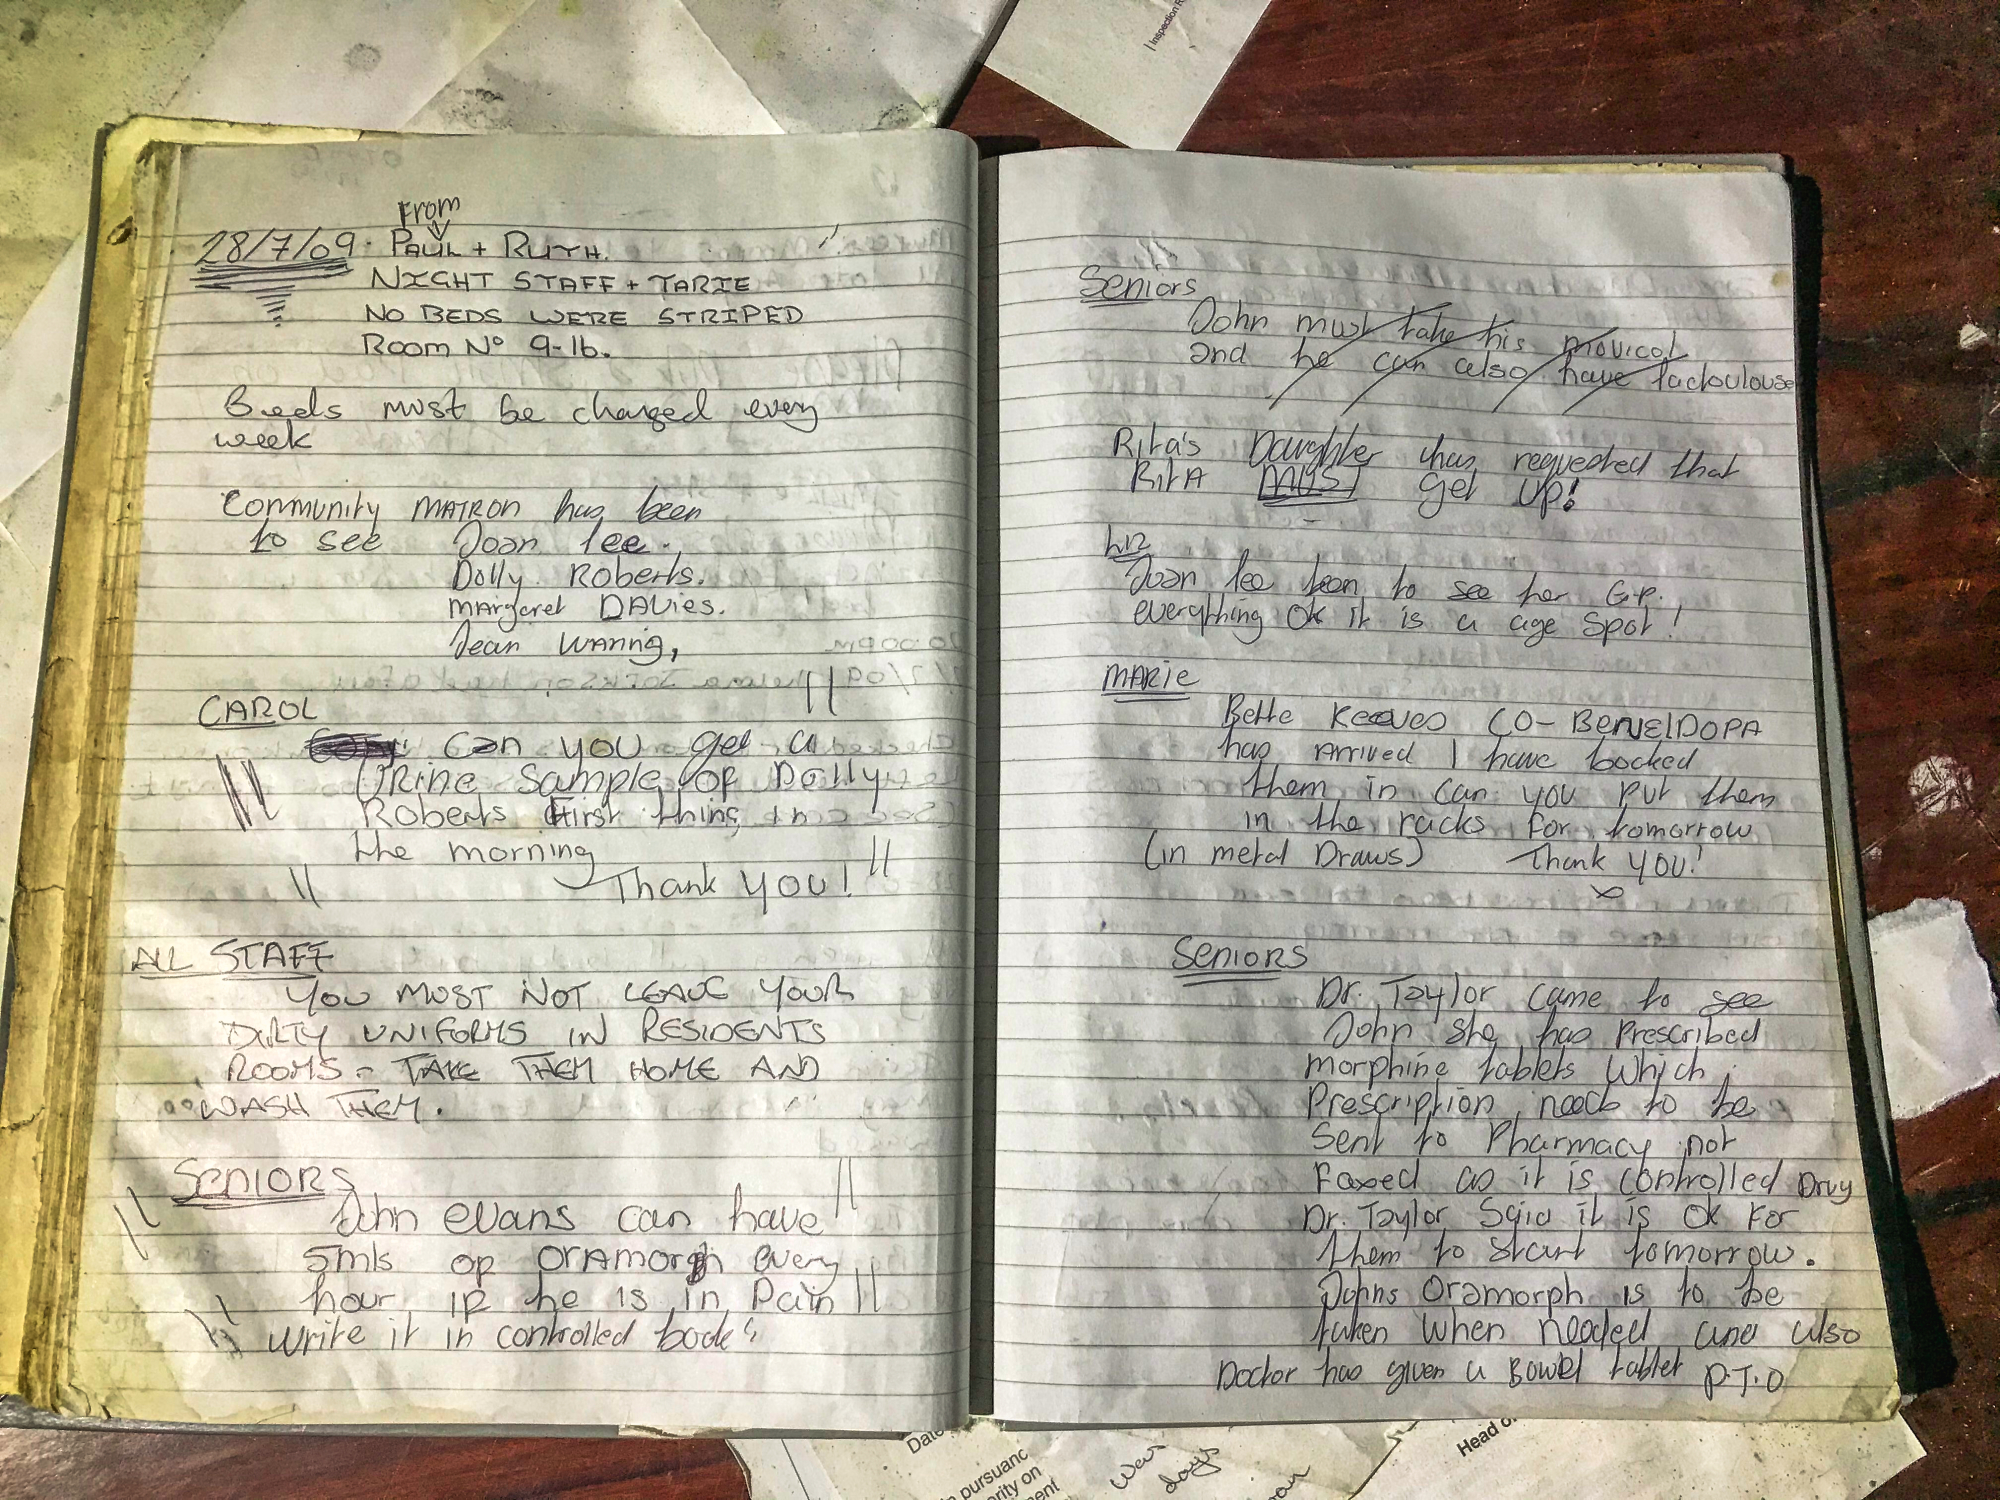 From
28/7/09. PAUL + RUTH.
NIGHT STAFF + TARIE
NO BEDS WERE STRIPED
ROOM No 9-16.
Beds must be changed every
week
Community MATRON has been
to see Joan Lee.
Dolly Roberts.
MArgaret DAVies.
Jean WARing,
CAROL
Can you get a
URine Sample of Dolly
Roberts First thing in
the morning
Thank YOU!
ALL STAFF
YOU MUST NOT LEAVE YOUR
DIRTY UNIFORMS IN RESIDENTS
ROOMS - TAKE THEM HOME AND
WASH THEM.
SENIORS
John evans can have
5mls of ORAMORPh every
hour, if he is in Pain
Write it in controlled book
Seniors
John must take his movicol
and he can also have lactoulouse
Rita's Daughter has requested that
RitA MUST get UP!
Liz
Joan Lee been to see her G.P.
everything Ok it is a age Spot!
MARie
Bette Keeves CO-BENELDOPA
has ARRived I have booked
them in can you put them
in the racks for tomorrow
(in metal Draws) Thank YOU!
SENIORS
Dr. Taylor came to see
John she has Prescribed
morphine tablets Which
Prescription needs to be
Sent to Pharmacy not
Faxed as it is controlled Drug
Dr. Taylor Said it is Ok For
them to start tomorrow.
Johns Oramorph is to be
taken When needed and also
Doctor has given a Bowel tablet P.T.O
Inspection R
Date
n pursuanc
ority on
ment
Was
days
Head o